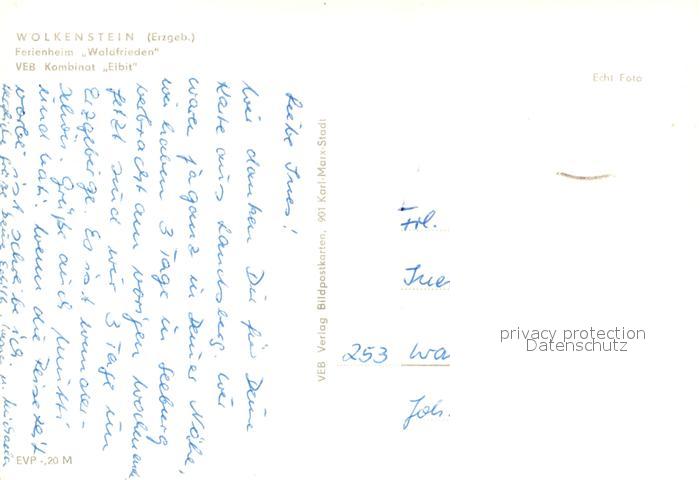 WOLKENSTEIN (Erzgeb.)
Ferienheim „Waldfrieden"
VEB Kombinat „Elbit"
Echt Foto
Liebe Ines!
Wir danken Dir für Deine
Karte aus Landsberg. Wir
waren ja ganz in Deiner Nähe,
wir haben 3 Tage in Seeburg
verbracht am vorigen Wochenende
Jetzt sind wir 3 Tage im
Erzgebirge. Es ist wunder-
schön. Grüße auch Mutti
und Vati. Wenn die Reisezeit
vorbei ist schreibe ich
Herzliche Grüße
VEB Verlag Bildpostkarten, 901 Karl-Marx-Stadt
Frl.
Ine
253 Wa
Joh.
privacy protection
Datenschutz
EVP -,20 M